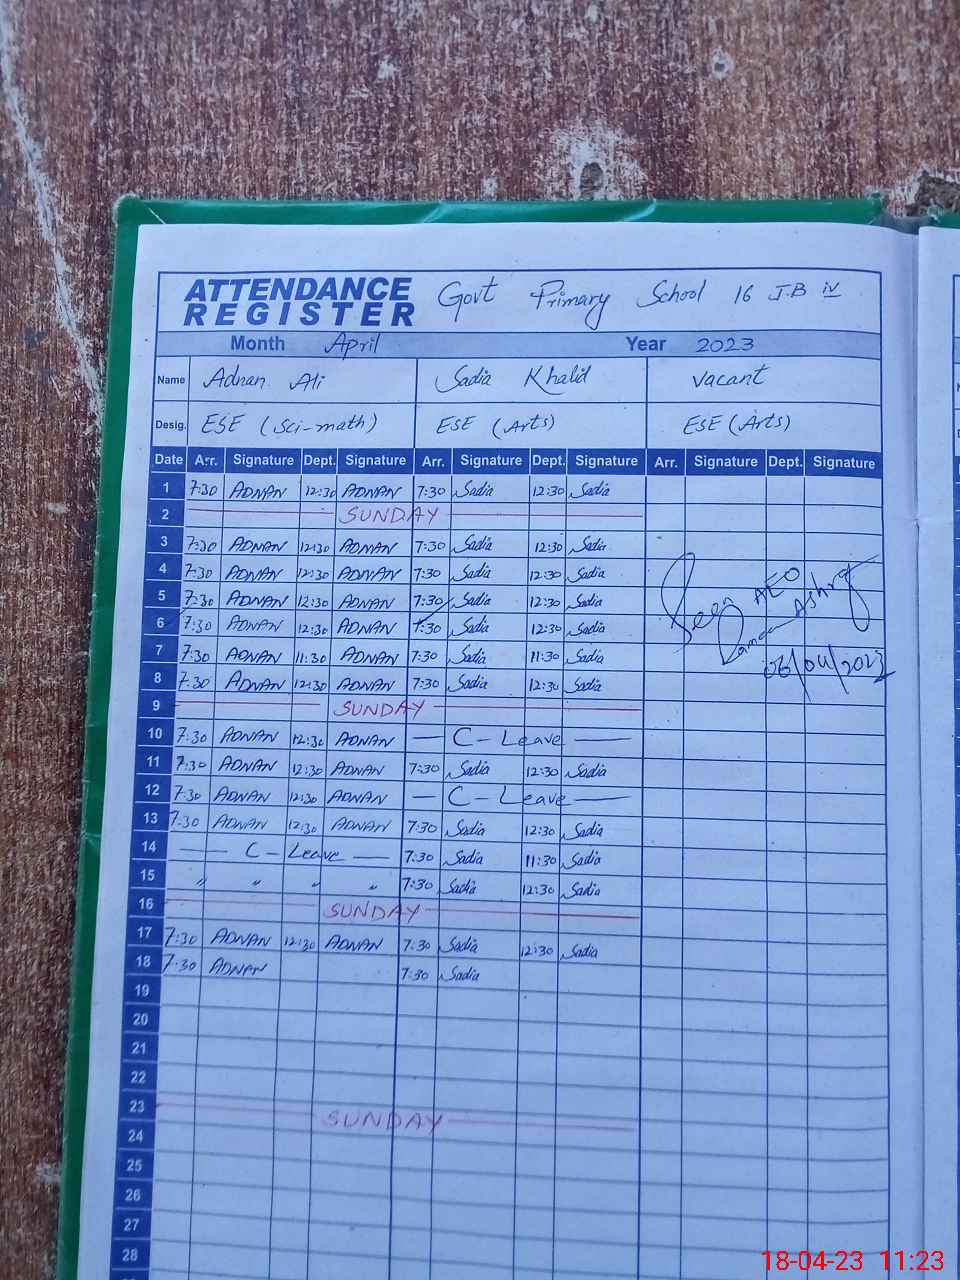 ATTENDANCE REGISTER Govt Primary School 16 J.B IV
Month April Year 2023
Name Adnan Ali Sadia Khalid Vacant
Desig. ESE (Sci-math) ESE (Arts) ESE (Arts)
Date Arr. Signature Dept. Signature Arr. Signature Dept. Signature Arr. Signature Dept. Signature
1 7:30 ADNAN 12:30 ADNAN 7:30 Sadia 12:30 Sadia
2 SUNDAY
3 7:30 ADNAN 12:30 ADNAN 7:30 Sadia 12:30 Sadia
4 7:30 ADNAN 12:30 ADNAN 7:30 Sadia 12:30 Sadia
5 7:30 ADNAN 12:30 ADNAN 7:30 Sadia 12:30 Sadia
6 7:30 ADNAN 12:30 ADNAN 7:30 Sadia 12:30 Sadia
7 7:30 ADNAN 11:30 ADNAN 7:30 Sadia 11:30 Sadia
8 7:30 ADNAN 12:30 ADNAN 7:30 Sadia 12:30 Sadia
Seen AEO
Ashraf
06/04/2023
9 SUNDAY
10 7:30 ADNAN 12:30 ADNAN — C - Leave —
11 7:30 ADNAN 12:30 ADNAN 7:30 Sadia 12:30 Sadia
12 7:30 ADNAN 12:30 ADNAN — C - Leave —
13 7:30 ADNAN 12:30 ADNAN 7:30 Sadia 12:30 Sadia
14 — C - Leave — 7:30 Sadia 11:30 Sadia
15 " " " " 7:30 Sadia 12:30 Sadia
16 SUNDAY
17 7:30 ADNAN 12:30 ADNAN 7:30 Sadia 12:30 Sadia
18 7:30 ADNAN 7:30 Sadia
19
20
21
22
23 SUNDAY
24
25
26
27
28
18-04-23 11:23